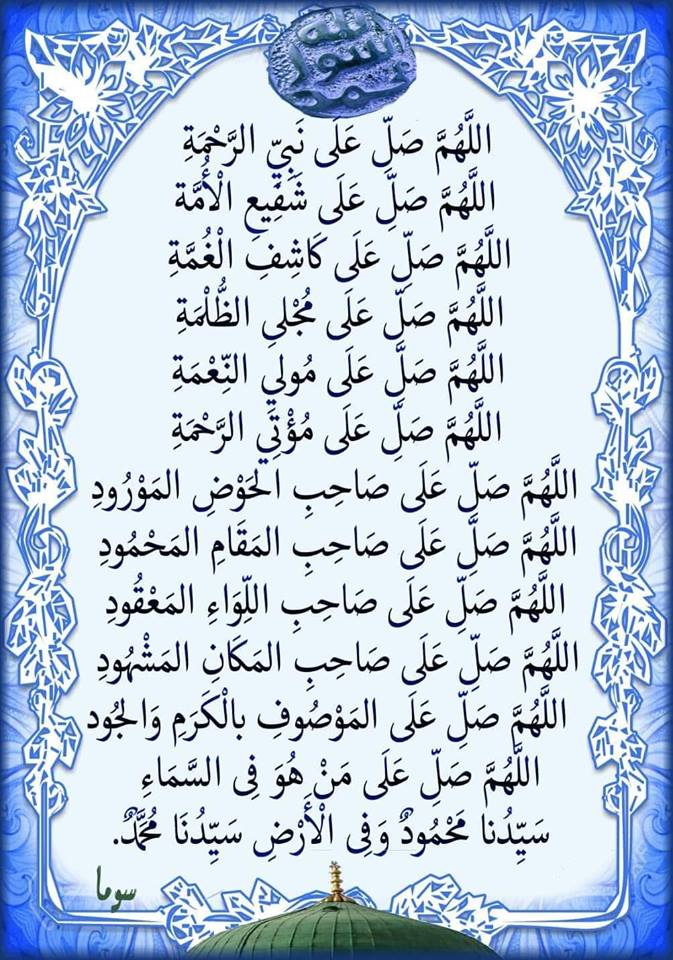 الله
رسول
محمد
اللَّهُمَّ صَلِّ عَلَى نَبِيِّ الرَّحْمَةِ
اللَّهُمَّ صَلِّ عَلَى شَفِيعِ الْأُمَّة
اللَّهُمَّ صَلِّ عَلَى كَاشِفِ الْغُمَّةِ
اللَّهُمَّ صَلِّ عَلَى مُجْلِي الظُّلْمَةِ
اللَّهُمَّ صَلِّ عَلَى مُولِي النِّعْمَةِ
اللَّهُمَّ صَلِّ عَلَى مُؤْتِي الرَّحْمَةِ
اللَّهُمَّ صَلِّ عَلَى صَاحِبِ الحَوْضِ المَوْرُودِ
اللَّهُمَّ صَلِّ عَلَى صَاحِبِ المَقَامِ المَحْمُودِ
اللَّهُمَّ صَلِّ عَلَى صَاحِبِ اللِّوَاءِ المَعْقُودِ
اللَّهُمَّ صَلِّ عَلَى صَاحِبِ المَكَانِ المَشْهُودِ
اللَّهُمَّ صَلِّ عَلَى المَوْصُوفِ بالْكَرَمِ وَالجُود
اللَّهُمَّ صَلِّ عَلَى مَنْ هُوَ فِى السَّمَاءِ
سَيِّدُنا مَحْمُودٌ وَفِى الْأَرْضِ سَيِّدُنَا مُحَمَّدٌ.
سوما